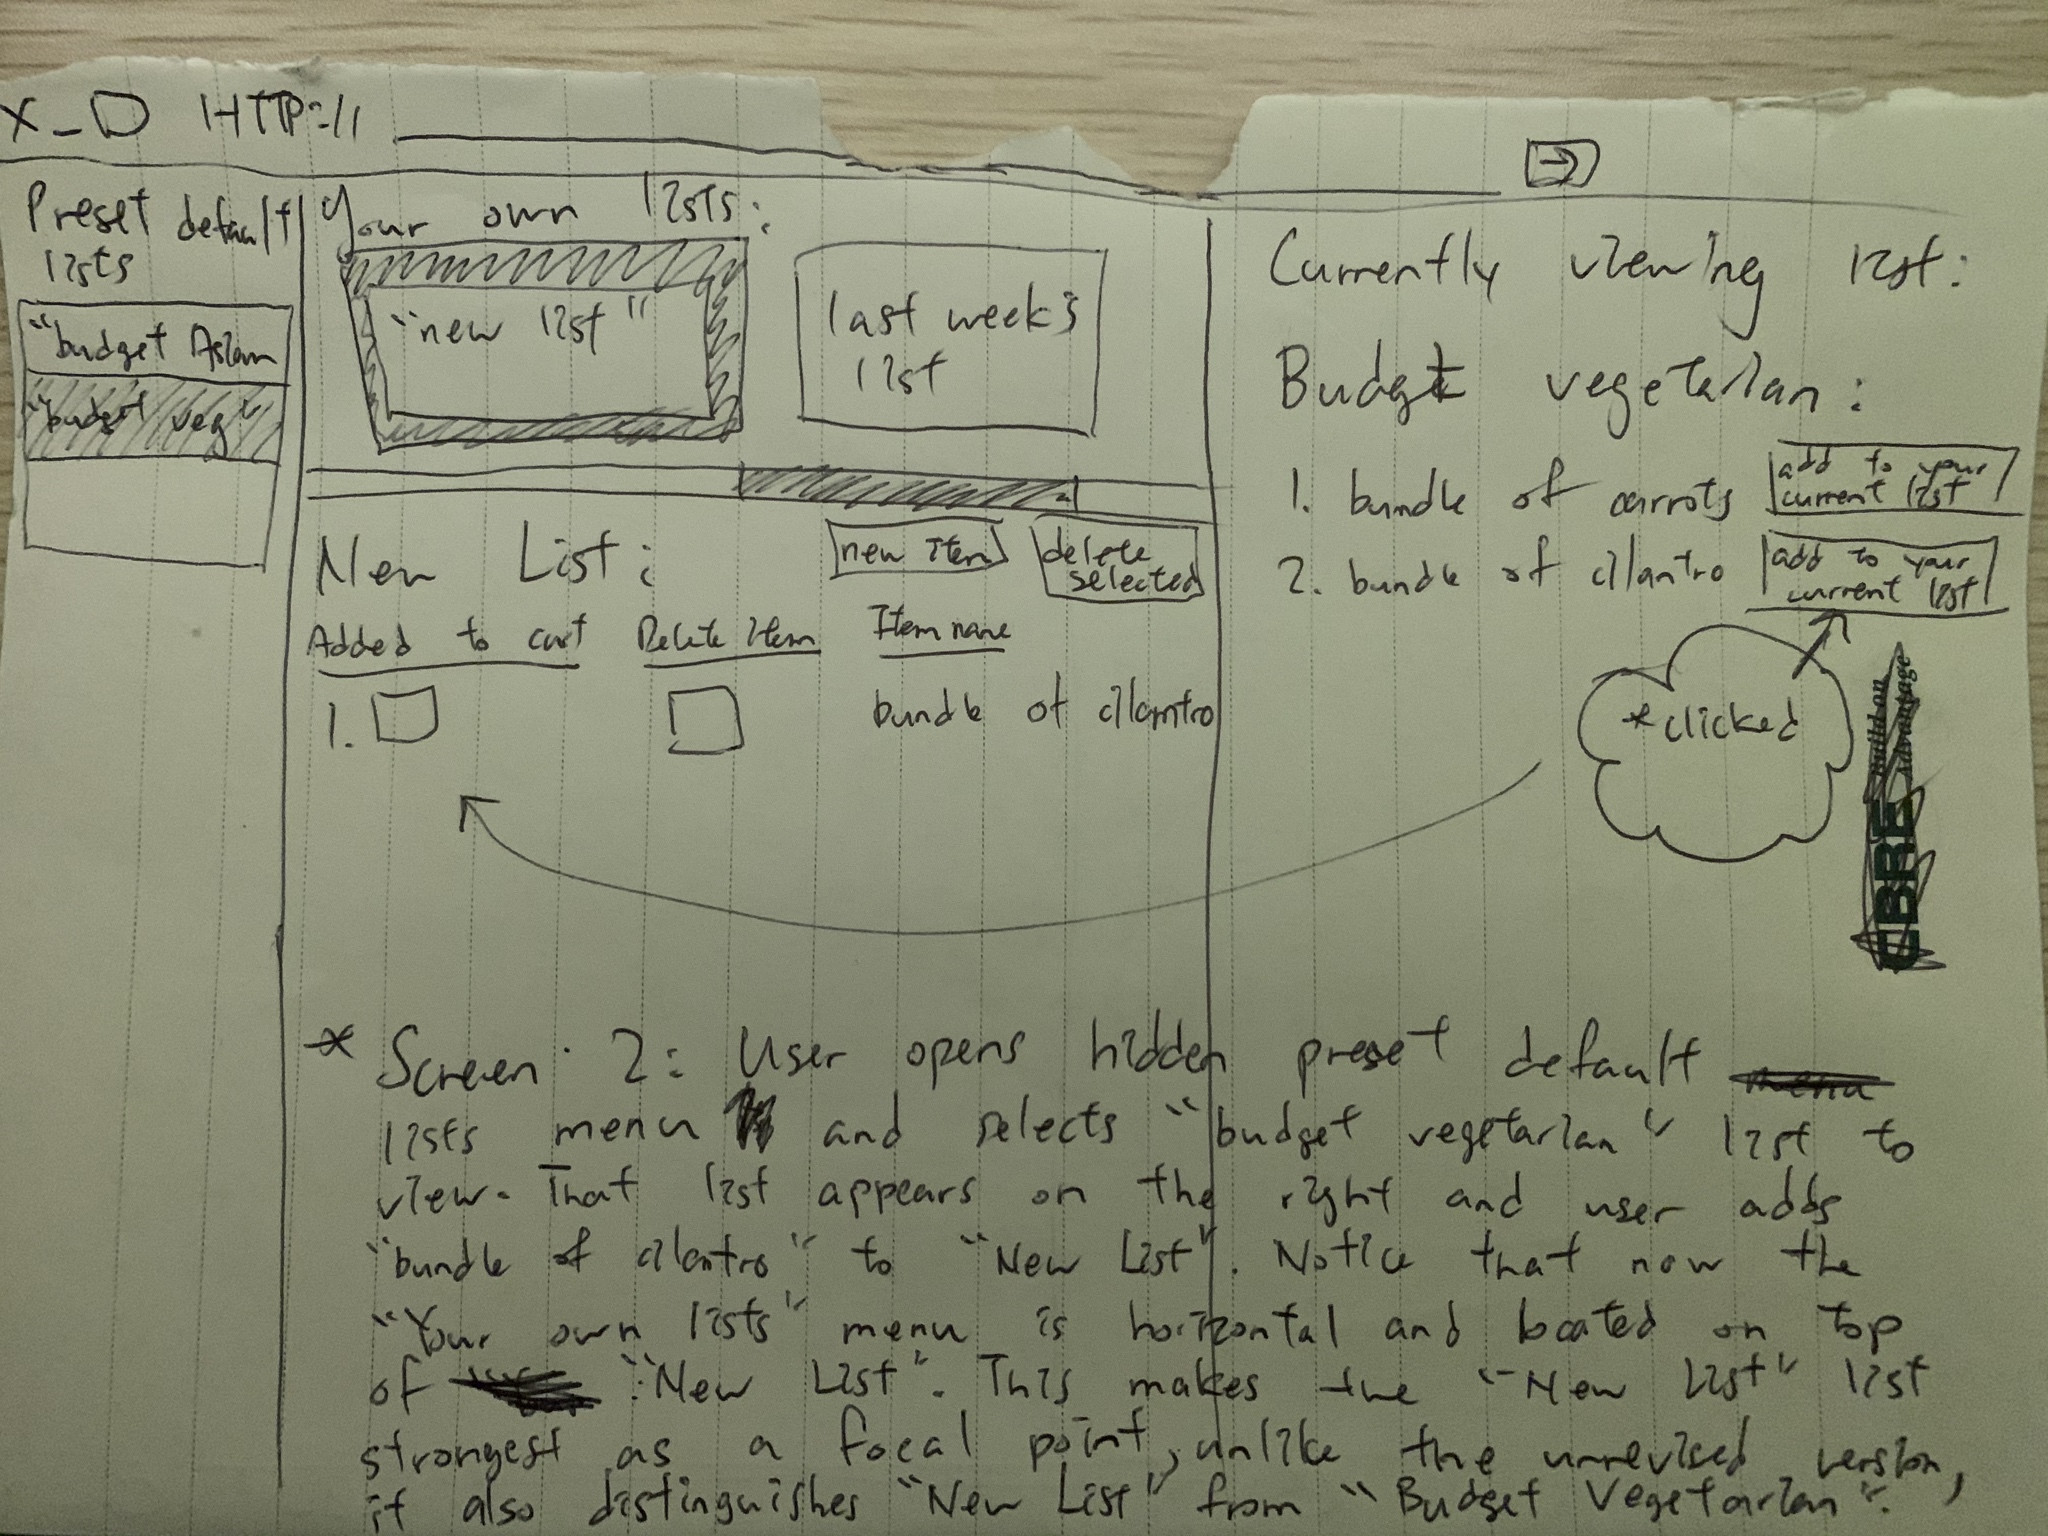 X _ HTTP://
Preset default
lists
"budget Asian
"budget veg"
Your own lists:
"new list"
last week's
list
New List:
new item
delete
selected
Added to cart Delete Item Item name
1. bundle of cilantro
Currently viewing list:
Budget vegetarian:
1. bundle of carrots
add to your
current list
2. bundle of cilantro
add to your
current list
*clicked
Build on
Advantage
CBRE
* Screen 2: User opens hidden preset default menu
lists menu and selects "budget vegetarian" list to
view. That list appears on the right and user adds
"bundle of cilantro" to "New List". Notice that now the
"Your own lists" menu is horizontal and located on top
of "New List". This makes the "New List" list
strongest as a focal point, unlike the unrevised version,
it also distinguishes "New List" from "Budget Vegetarian".